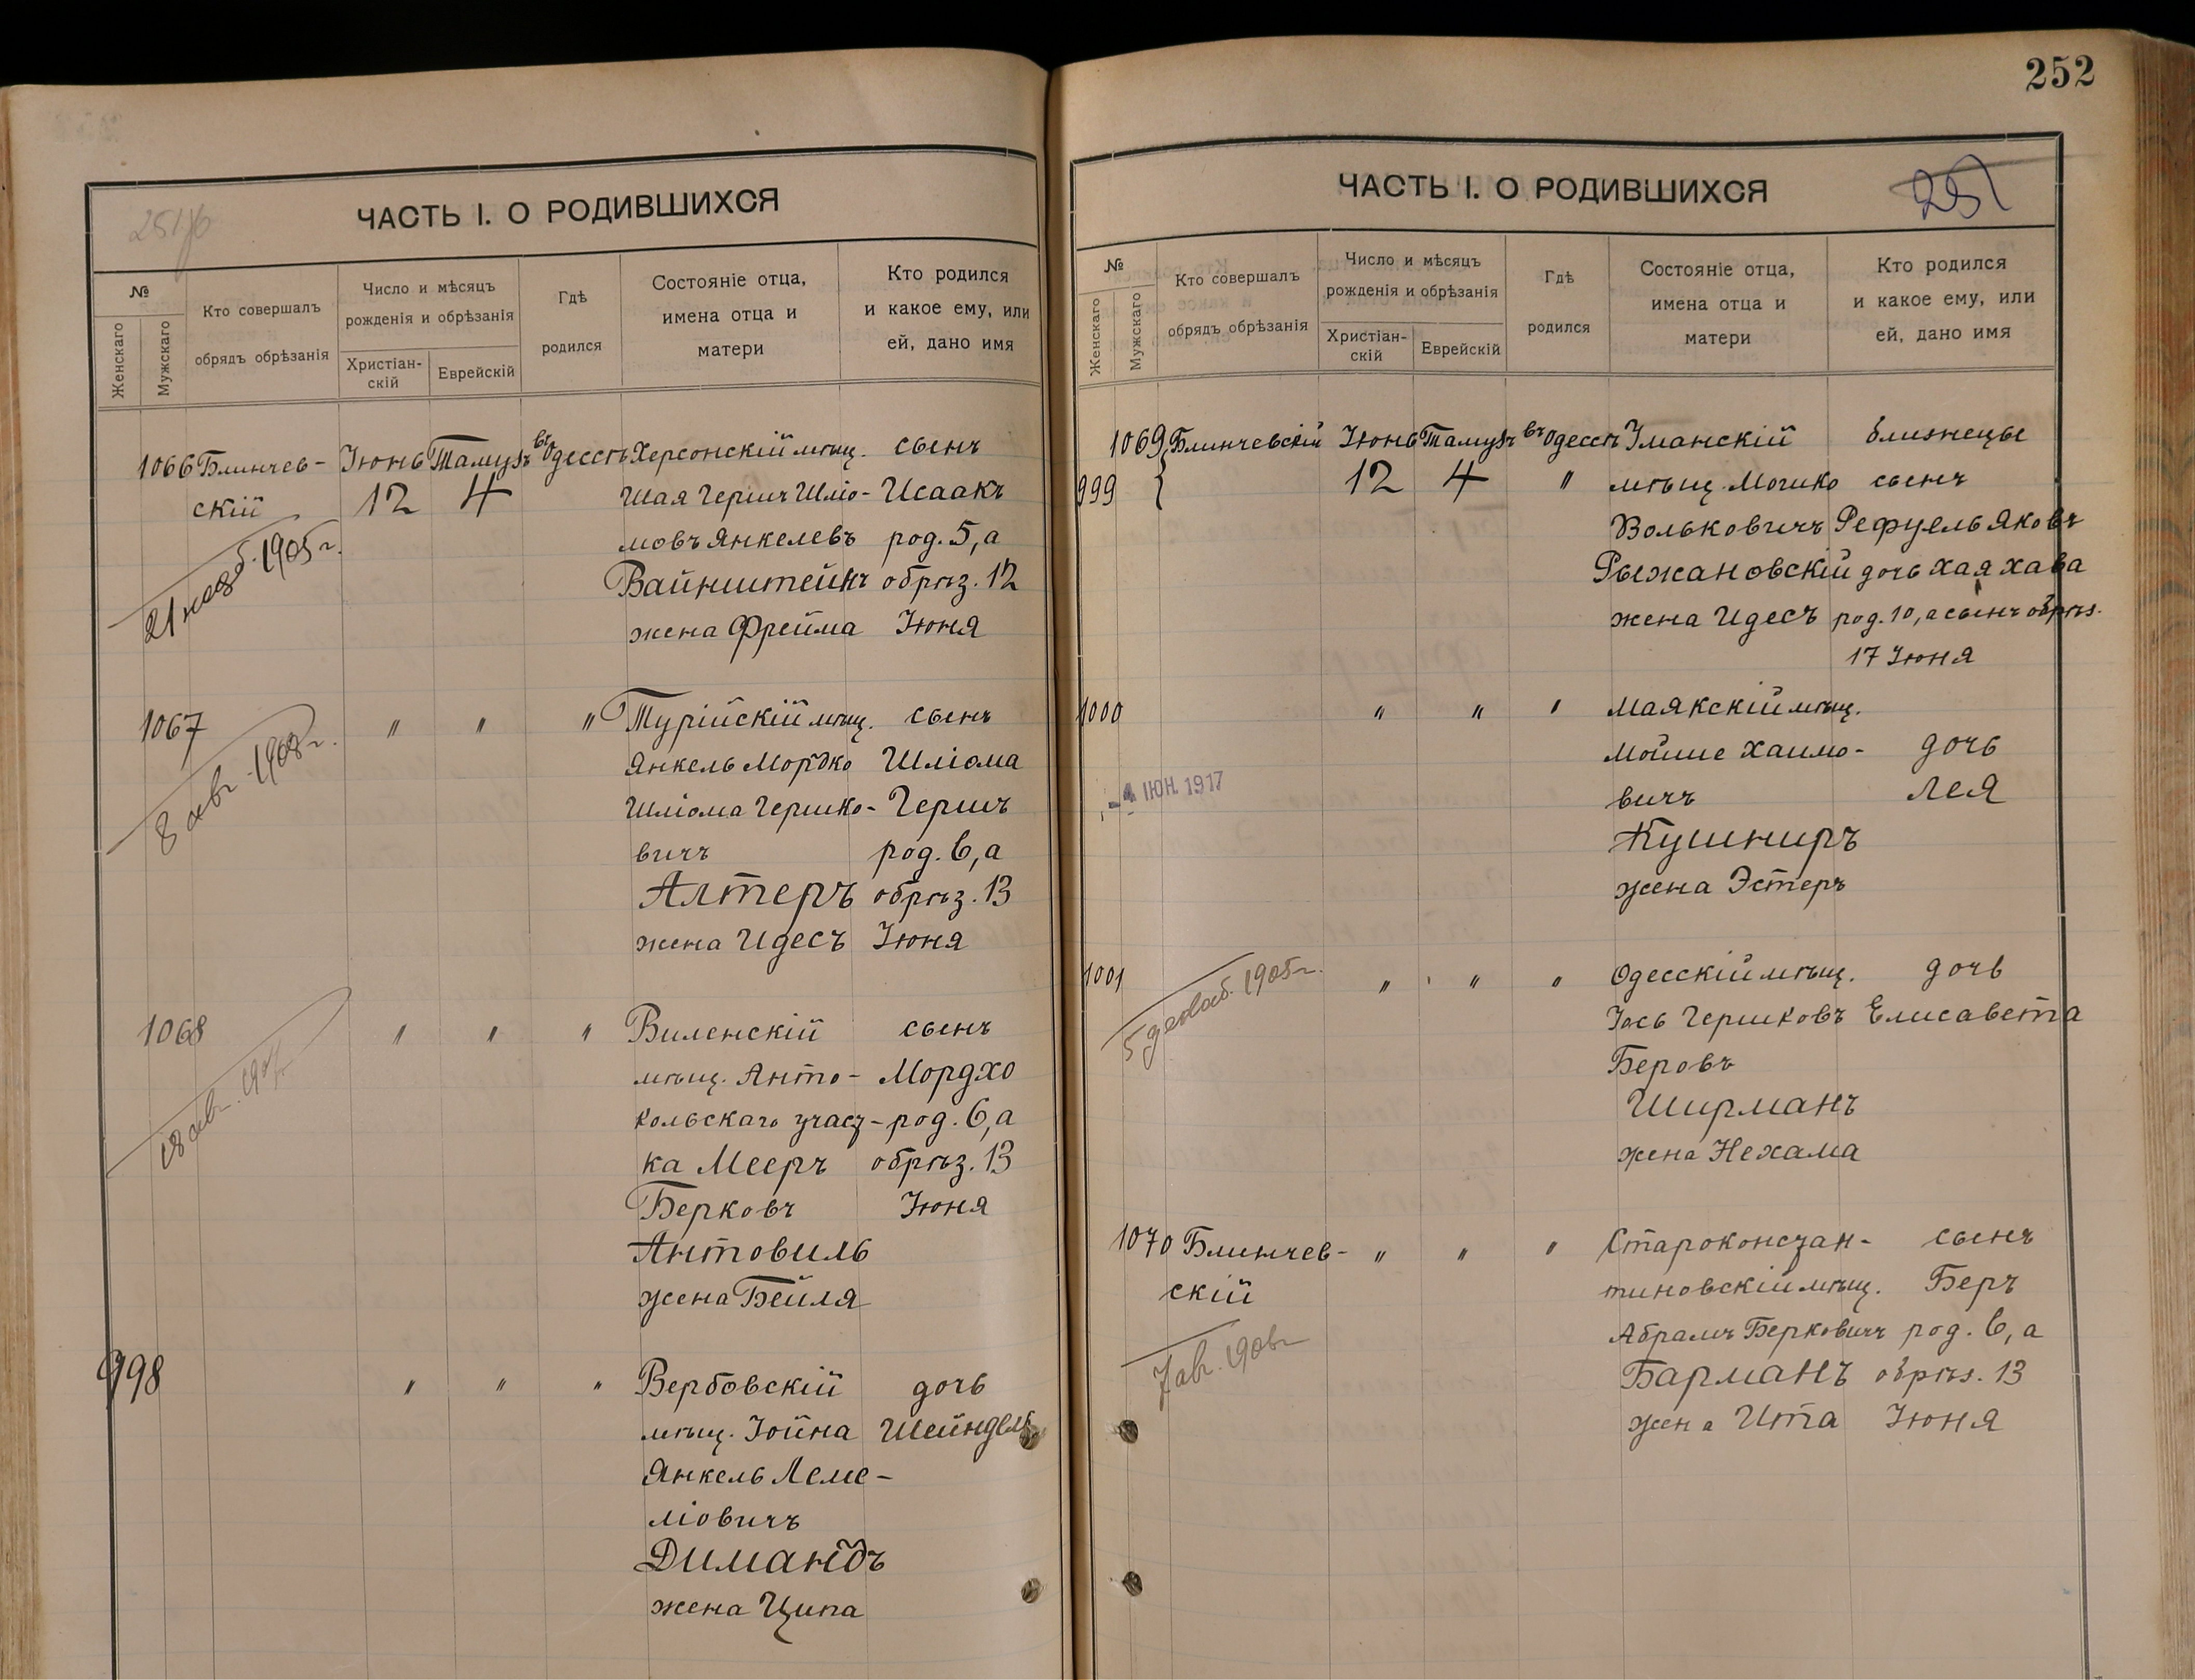 252
ЧАСТЬ I. О РОДИВШИХСЯ
№
Женскаго
Мужскаго
Кто совершалъ
обрядъ обрѣзанія
Число и мѣсяцъ
рожденія и обрѣзанія
Христіан-
скій
Еврейскій
Гдѣ
родился
Состояніе отца,
имена отца и
матери
Кто родился
и какое ему, или
ей, дано имя
1066 Блинчев- Іюнь Тамузъ въ Одессѣ Херсонскій мѣщ. сынъ
скій 12 4 Шая Гершъ Шлiо- Исаакъ
мовъ Янкелевъ род. 5, а
Вайнштейнъ обрѣз. 12
жена Фрейма Іюня
1905 г.
1067 " " " Турійскій мѣщ. сынъ
Янкель Мордко Шліома
Шліома Гершко- Гершъ
вичъ род. 6, а
Алтеръ обрѣз. 13
жена Идесъ Іюня
8 авг. 1908 г.
1068 " " " Виленскій сынъ
мѣщ. Анто- Мордхо
кольскаго участ- род. 6, а
ка Мееръ обрѣз. 13
Берковъ Іюня
Антовиль
жена Бейля
998 " " " Вербовскій дочь
мѣщ. Іойна Шейндель
Янкель Леме-
ліовичъ
Димандъ
жена Ципа
ЧАСТЬ I. О РОДИВШИХСЯ
251
№
Женскаго
Мужскаго
Кто совершалъ
обрядъ обрѣзанія
Число и мѣсяцъ
рожденія и обрѣзанія
Христіан-
скій
Еврейскій
Гдѣ
родился
Состояніе отца,
имена отца и
матери
Кто родился
и какое ему, или
ей, дано имя
1069 Блинчевскій Іюнь Тамузъ въ Одессѣ Уманскій близнецы
999 12 4 " мѣщ. Мошко сынъ
Вольковичъ Рефуель Яковъ
Рыжановскій дочь Хая Хава
жена Идесъ род. 10, а сынъ обрѣз.
17 Іюня
1000 " " " Маякскій мѣщ.
Мойше Хаимо- дочь
вичъ Лея
Кушниръ
жена Эстеръ
4 ІЮН. 1917
1001 " " " Одесскій мѣщ. дочь
Іось Гершковъ Елисавета
Беровъ
Ширманъ
жена Нехама
1905 г.
1070 Блинчев- " " " Староконстан- сынъ
скій тиновскій мѣщ. Беръ
Абрамъ Берковичъ род. 6, а
Барманъ обрѣз. 13
жена Ита Іюня
7 авг. 1906 г.